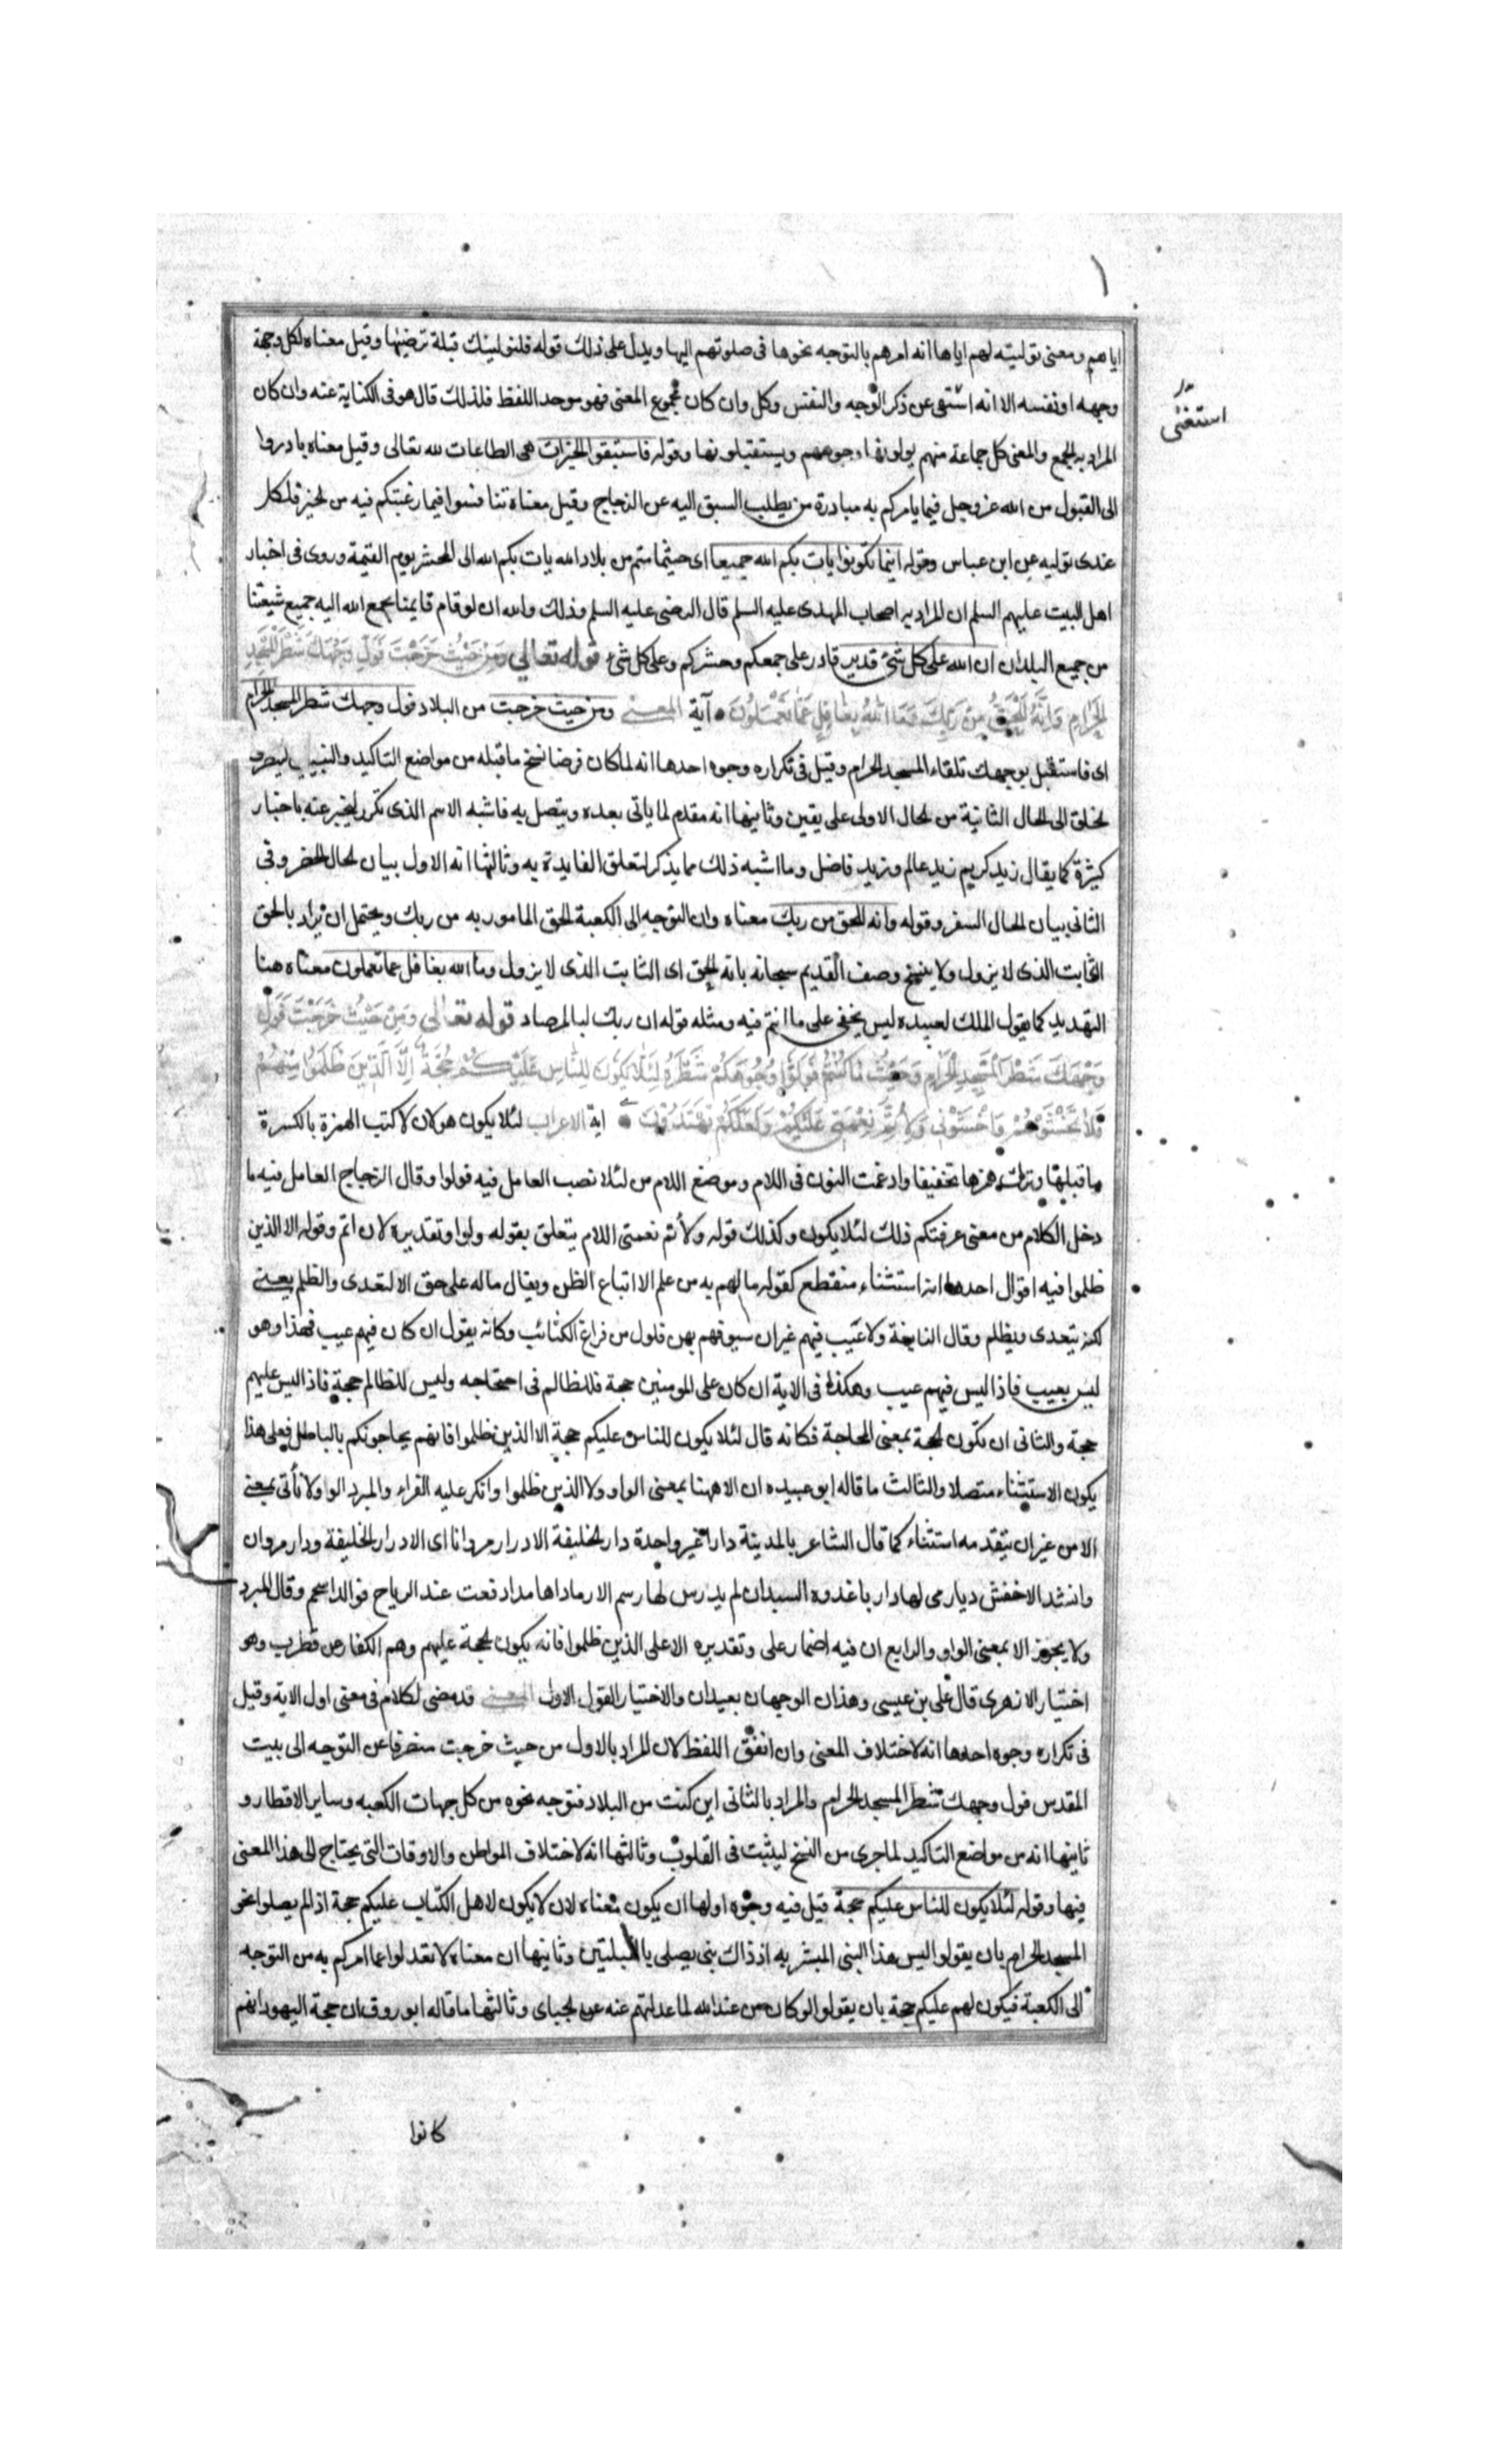 اياهم ومعنى توليته لهم اياها انه امرهم بالتوجه نحوها فى صلوتهم اليها ويدل على ذلك قوله فلنولينك قبلة ترضيها وقيل معناه لكل وجهة
وجهه او نفسه الا انه استغنى عن ذكر الوجه والنفس وكل وان كان مجموع المعنى فهو موحد اللفظ فلذلك قال هو فى الكناية عنه وان كان
استغنى
المراد به الجمع والمعنى كل جماعة منهم يولونها وجوههم ويستقبلونها وقوله فاستبقوا الخيرات هى الطاعات لله تعالى وقيل معناه بادروا
الى القبول من الله عز وجل فيما يامركم به مبادرة من يطلب السبق اليه عن الزجاج وقيل معناه تنافسوا فيما رغبتكم فيه من الخير فلكل
عندى توليه عن ابن عباس وقوله اينما تكونوا يات بكم الله جميعا اى حيثما متم من بلاد الله يات بكم الله الى المحشر يوم القيمة وروى فى اخبار
اهل البيت عليهم السلم ان المراد به اصحاب المهدى عليه السلم قال الرضى عليه السلم وذلك والله ان لو قام قايمنا يجمع الله اليه جميع شيعتنا
من جميع البلدان ان الله على كل شئ قدير قادر على جمعكم وحشركم وعلى كل شئ قوله تعالى ومن حيث خرجت فول وجهك شطر المسجد
الحرام وانه للحق من ربك وما الله بغافل عما تعملون آية المعنى ومن حيث خرجت من البلاد فول وجهك شطر المسجد الحرام
اى فاستقبل بوجهك تلقاء المسجد الحرام وقيل فى تكراره وجوه احدها انه لما كان فرضا نسخ ما قبله من مواضع التاكيد والتبيين لينصرف
الخلق الى الحال الثانية من الحال الاولى على يقين وثانيها انه مقدم لما ياتى بعده ويتصل به فاشبه الاسم الذى تكرر ليخبر عنه باخبار
كثيرة كما يقال زيد كريم زيد عالم وزيد فاضل وما اشبه ذلك مما يذكر لتعلق الفايدة به وثالثها انه الاول بيان لحال الحضر وفى
الثانى بيان لحال السفر وقوله وانه للحق من ربك معناه وان التوجه الى الكعبة الحق المامور به من ربك ويحتمل ان يراد بالحق
الثابت الذى لا يزول ولا ينسخ وصف القديم سبحانه بانه الحق اى الثابت الذى لا يزول وما الله بغافل عما تعملون معناه هنا
التهديد كما يقول الملك لعبيده ليس يخفى على ما انتم فيه ومثله قوله ان ربك لبالمرصاد قوله تعالى ومن حيث خرجت فول
وجهك شطر المسجد الحرام وحيث ما كنتم فولوا وجوهكم شطره لئلا يكون للناس عليكم حجة الا الذين ظلموا منهم
فلا تخشوهم واخشونى ولاتم نعمتى عليكم ولعلكم تهتدون اية الاعراب لئلا يكون هو لان لا كتب الهمزة بالكسرة
ما قبلها وترك همزها تخفيفا وادغمت النون فى اللام وموضع اللام من لئلا نصب العامل فيه فولوا وقال الزجاج العامل فيه ما
دخل الكلام من معنى عرفتكم ذلك لئلا يكون وكذلك قوله ولأتم نعمتى اللام يتعلق بقوله ولوا وتقديره لان اتم وقوله الا الذين
ظلموا فيه اقوال احدها انه استثناء منقطع كقوله ما لهم به من علم الا اتباع الظن ويقال ماله على حق الا التعدى والظلم يعنى
لكنه يتعدى ويظلم وقال النابغة ولا عيب فيهم غير ان سيوفهم بهن فلول من قراع الكتائب وكانه يقول ان كان فيهم عيب فهذا وهو
ليس بعيب فاذا ليس فيهم عيب وهكذا فى الاية ان كان على المومنين حجة فللظالم فى احتجاجه وليس للظالم حجة فاذا ليس عليهم
حجة والثانى ان تكون الحجة بمعنى المحاجة فكانه قال لئلا يكون للناس عليكم حجة الا الذين ظلموا فانهم يحاجونكم بالباطل فعلى هذا
يكون الاستثناء متصلا والثالث ما قاله ابو عبيده ان الا ههنا بمعنى الواو ولا الذين ظلموا وانكر عليه الفراء والمبرد الواو لا تأتى بمعنى
الا من غير ان يتقدمه استثناء كما قال الشاعر بالمدينة دار غير واحدة دار الخليفة الا دار مروانا اى الا دار الخليفة ودار مروان
وانشد الاخفش ديار مى لها دار باغدوه السيدان لم يدرس لها رسم الا رمادا هامدا دفعت عند الرياح فوالد اسحم وقال المبرد
ولا يجوز الا بمعنى الواو والرابع ان فيه اضمار على وتقديره الا على الذين ظلموا فانه يكون الحجة عليهم وهم الكفار عن قطرب وهو
اختيار الازهرى قال على بن عيسى وهذان الوجهان بعيدان والاختيار القول الاول المعنى قد مضى الكلام فى معنى اول الاية وقيل
فى تكراره وجوه احدها انه لاختلاف المعنى وان اتفق اللفظ لان المراد بالاول من حيث خرجت منصرفا عن التوجه الى بيت
المقدس فول وجهك شطر المسجد الحرام والمراد بالثانى اين كنت من البلاد فتوجه نحوه من كل جهات الكعبه وساير الاقطار و
ثانيها انه من مواضع التاكيد لما جرى من النسخ ليثبت فى القلوب وثالثها انه لاختلاف المواطن والاوقات التى يحتاج الى هذا المعنى
فيها وقوله لئلا يكون للناس عليكم حجة قيل فيه وجوه اولها ان يكون معناه لان لا يكون لاهل الكتاب عليكم حجة اذ لم يصلوا نحو
المسجد الحرام بان يقولوا ليس هذا النبى المبشر به اذ ذاك نبى يصلى بالقبلتين وثانيها ان معناه لا تعدلوا عما امركم به من التوجه
الى الكعبة فيكون لهم عليكم حجة بان يقولوا لو كان من عند الله لما عدلتم عنه عن الجباى وثالثها ما قاله ابو روق ان حجة اليهود انهم
كانوا